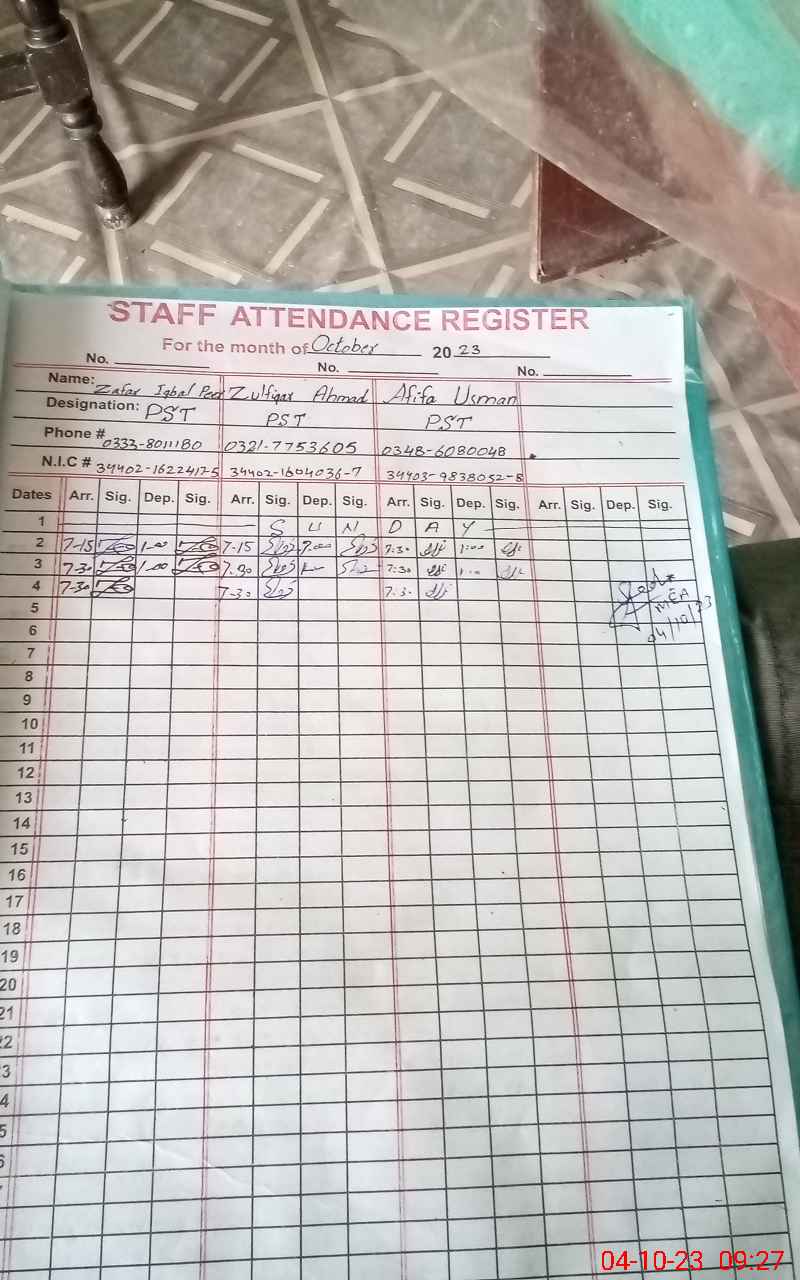 STAFF ATTENDANCE REGISTER
For the month of October 2023
No. No. No.
Name: Zafar Iqbal Zulfiqar Ahmad Afifa Usman
Designation: PST PST PST
Phone # 0333-8011180 0321-7753605 0348-6080048
N.I.C # 34402-1622417-5 34402-1604036-7 34403-9838052-8
Dates Arr. Sig. Dep. Sig. Arr. Sig. Dep. Sig. Arr. Sig. Dep. Sig. Arr. Sig. Dep. Sig.
1 S U N D A Y
2 7-15 1-00 7-15 7:30 1:00
3 7-30 1-00 7-30 7:30
4 7-30 7-30 7:30
MEA
04/10/23
5
6
7
8
9
10
11
12
13
14
15
16
17
18
19
20
21
22
3
4
5
6
04-10-23 09:27